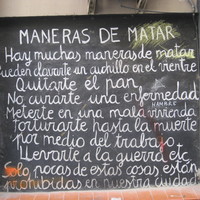 MANERAS DE MATAR
Hay muchas maneras de matar
Pueden clavarte un cuchillo en el vientre
Quitarte el pan
No curarte una enfermedad
HAMBRE
Meterte en una mala vivienda
Torturarte hasta la muerte
por medio del trabajo
Llevarte a la guerra etc
Solo pocas de estas cosas están
prohibidas en nuestra ciudad